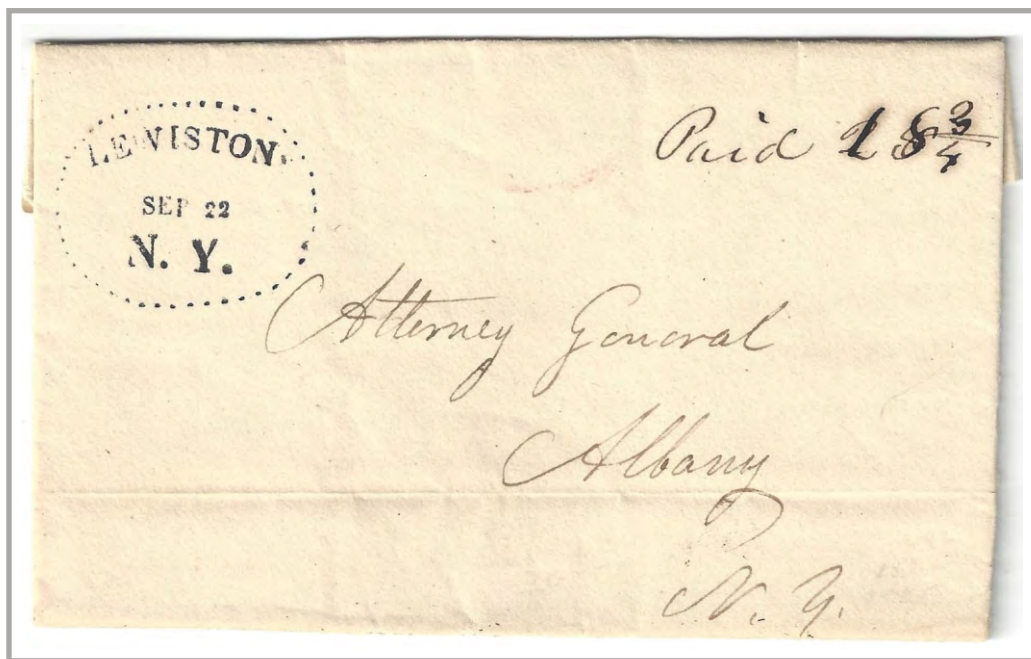 LEWISTON.
SEP 22
N. Y.
Paid 18 3/4
Attorney General
Albany
N. Y.